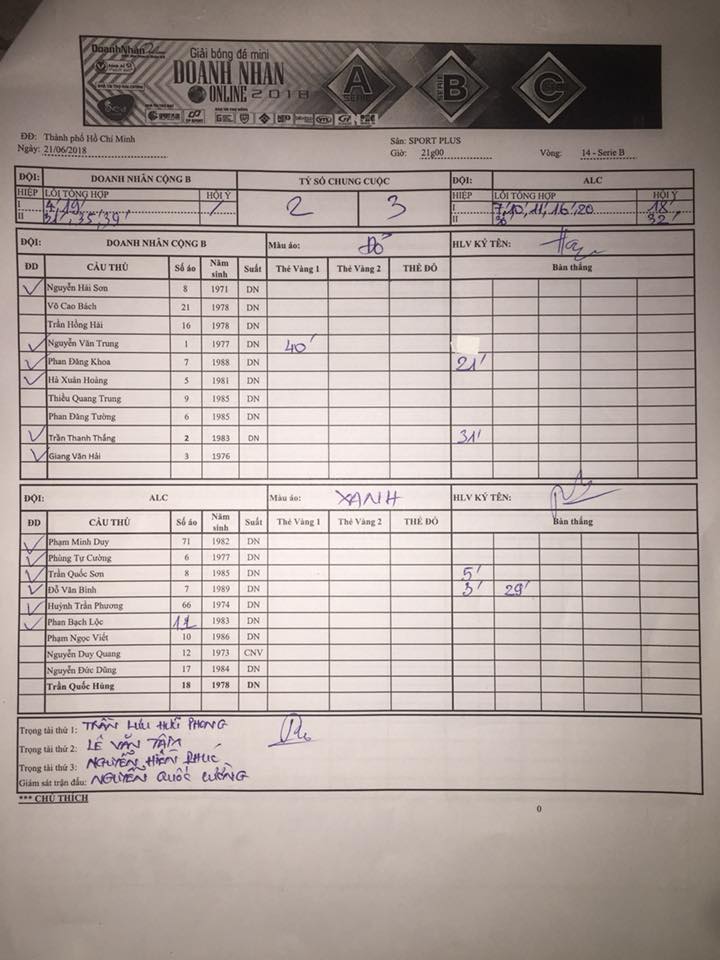 DoanhNhân
Giải bóng đá mini
DOANH NHÂN
ONLINE 2018
SERIE A
SERIE B
C
ĐĐ: Thành phố Hồ Chí Minh Sân: SPORT PLUS
Ngày: 21/06/2018 Giờ: 21g00 Vòng: 14 - Serie B
ĐỘI: DOANH NHÂN CỘNG B TỶ SỐ CHUNG CUỘC ĐỘI: ALC
HIỆP LỖI TỔNG HỢP HỘI Ý 2 3 HIỆP LỖI TỔNG HỢP HỘI Ý
I 4',19' / I 7',10',11',16',20 18'
II 31',35',39' II 30' 32'
ĐỘI: DOANH NHÂN CỘNG B Màu áo: Đỏ HLV KÝ TÊN:
ĐD CẦU THỦ Số áo Năm sinh Suất Thẻ Vàng 1 Thẻ Vàng 2 THẺ ĐỎ Bàn thắng
Nguyễn Hải Sơn 8 1971 DN
Võ Cao Bách 21 1978 DN
Trần Hồng Hải 16 1978 DN
Nguyễn Văn Trung 1 1977 DN 40'
Phan Đăng Khoa 7 1988 DN 21'
Hà Xuân Hoàng 5 1981 DN
Thiều Quang Trung 9 1985 DN
Phan Đăng Tường 6 1985 DN
Trần Thanh Thắng 2 1983 DN 31'
Giang Văn Hải 3 1976
ĐỘI: ALC Màu áo: XANH HLV KÝ TÊN:
ĐD CẦU THỦ Số áo Năm sinh Suất Thẻ Vàng 1 Thẻ Vàng 2 THẺ ĐỎ Bàn thắng
Phạm Minh Duy 71 1982 DN
Phùng Tự Cường 6 1977 DN
Trần Quốc Sơn 8 1985 DN 5'
Đỗ Văn Bình 7 1989 DN 3' 29'
Huỳnh Trần Phương 66 1974 DN
Phan Bạch Lộc 1983 DN
Phạm Ngọc Viết 10 1986 DN
Nguyễn Duy Quang 12 1973 CNV
Nguyễn Đức Dũng 17 1984 DN
Trần Quốc Hùng 18 1978 DN
Trọng tài thứ 1: TRẦN LƯU HUÊ PHONG
Trọng tài thứ 2: LÊ VĂN TÂM
Trọng tài thứ 3: NGUYỄN HIỀN PHÚC
Giám sát trận đấu: NGUYỄN QUỐC CƯỜNG
*** CHÚ THÍCH
0